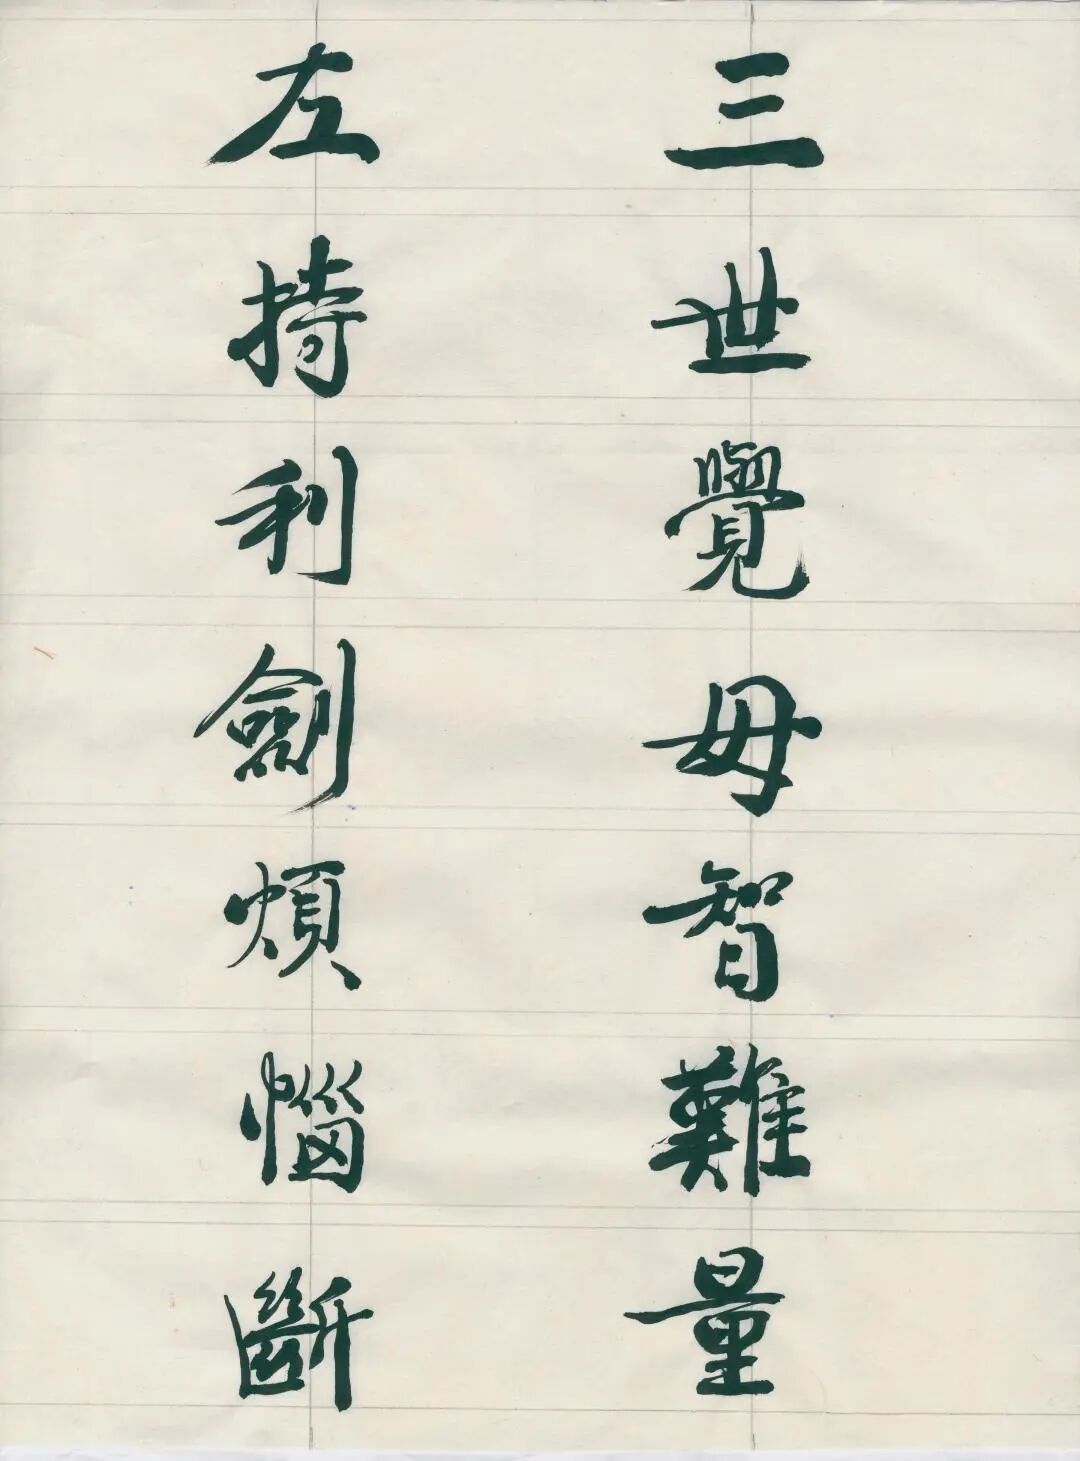 三世覺毋智難量
左持利劍煩惱斷